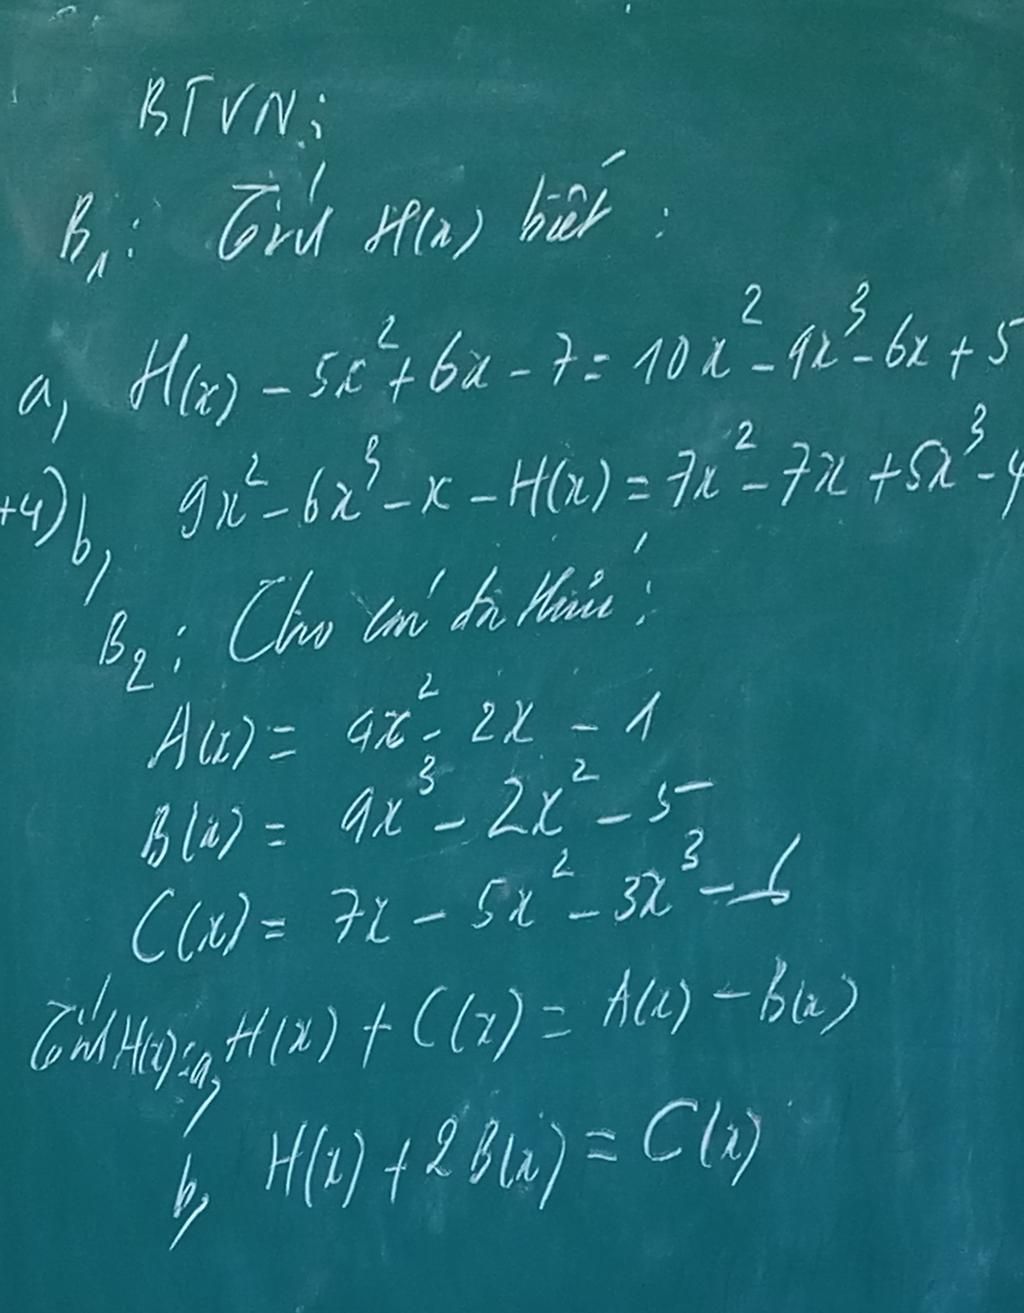 BTVN:
B₁: Tính H(x) biết:
a, H(x) - 5x² + 6x - 7 = 10x² - 9x³ - 6x + 5
+4) b, 9x² - 6x³ - x - H(x) = 7x² - 7x + 5x³ - 4
B₂: Cho các đa thức:
A(x) = 4x² - 2x - 1
B(x) = 9x³ - 2x² - 5
C(x) = 7x - 5x² - 3x³ - 1
Tính H(x): a, H(x) + C(x) = A(x) - B(x)
b, H(x) + 2B(x) = C(x)